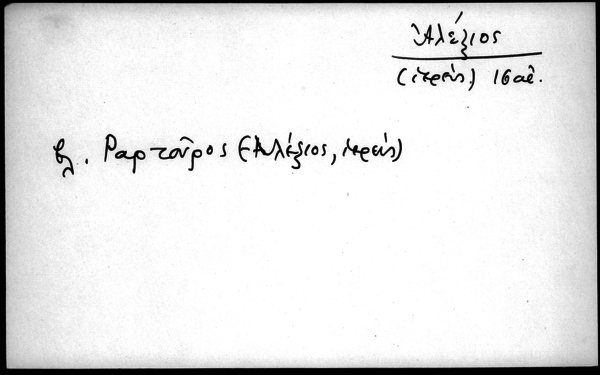 Ἀλέξιος
(ἱερεύς) 16 αἰ.
βλ. Ραρτοῦρος (Ἀλέξιος, ἱερεύς)